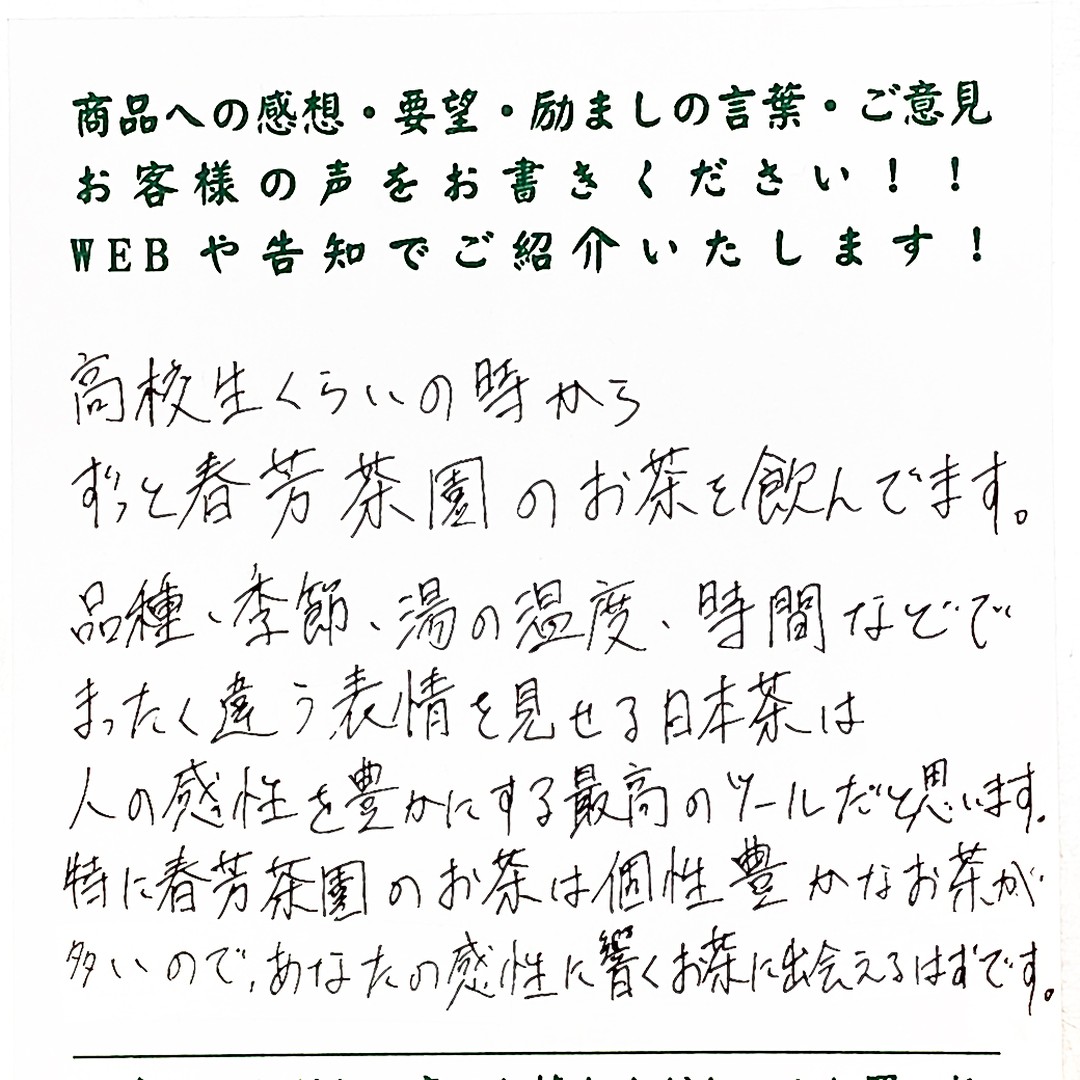 商品への感想・要望・励ましの言葉・ご意見
お客様の声をお書きください！！
WEBや告知でご紹介いたします！
高校生くらいの時から
ずっと春芳茶園のお茶を飲んでます。
品種、季節、湯の温度、時間などで
まったく違う表情を見せる日本茶は
人の感性を豊かにする最高のツールだと思います。
特に春芳茶園のお茶は個性豊かなお茶が
多いので、あなたの感性に響くお茶に出会えるはずです。